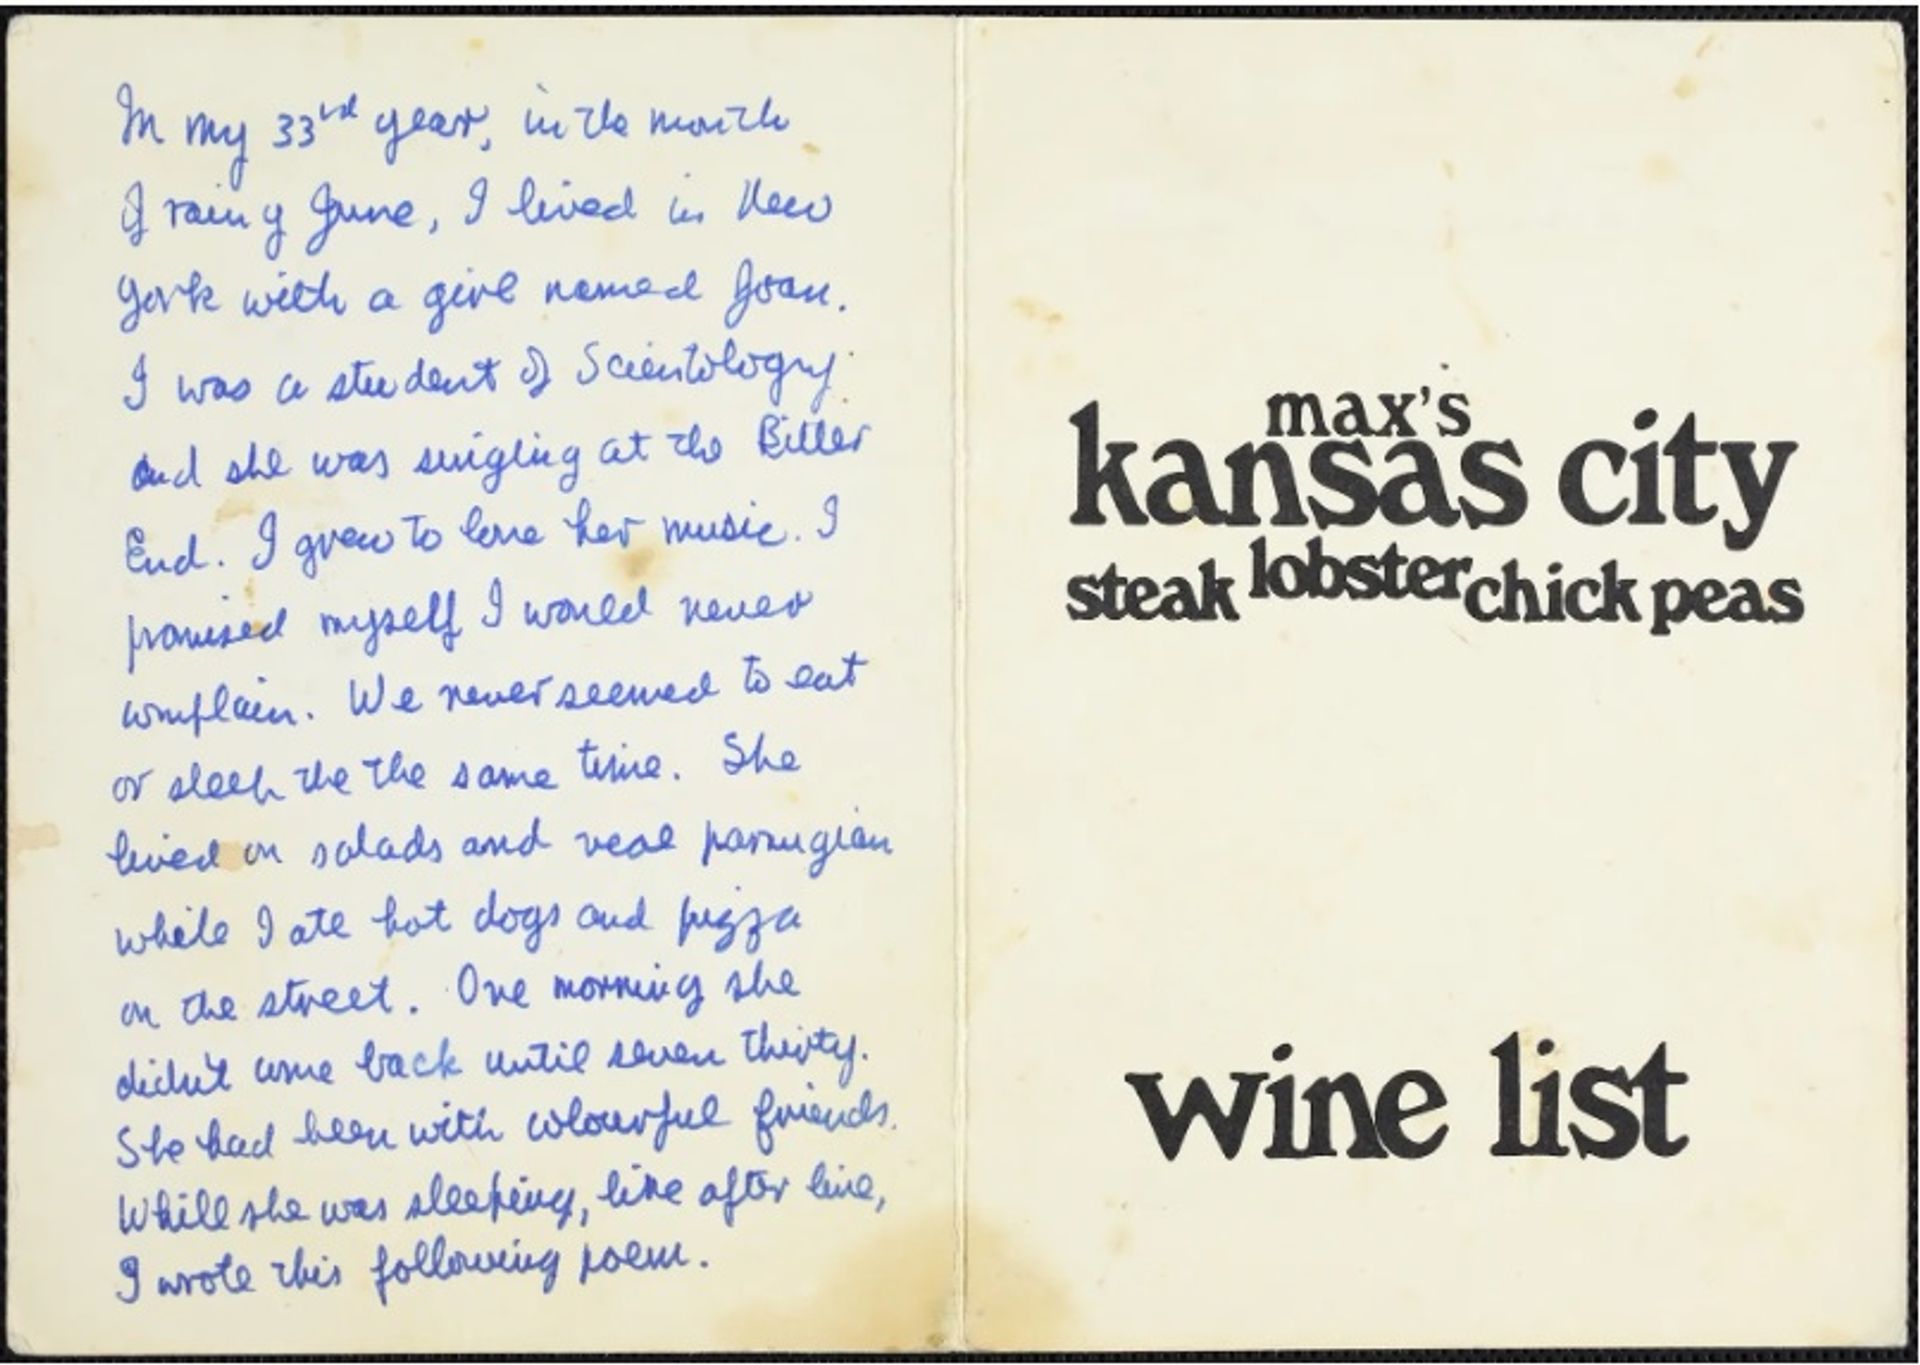 In my 33rd year, in the month
of rainy June, I lived in New
York with a girl named Joan.
I was a student of Scientology
and she was singing at the Bitter
End. I grew to love her music. I
promised myself I would never
complain. We never seemed to eat
or sleep the the same time. She
lived on salads and veal parmigian
while I ate hot dogs and pizza
on the street. One morning she
didn't come back until seven thirty.
She had been with colourful friends.
While she was sleeping, line after line,
I wrote this following poem.
max's
kansas city
steak lobster chick peas
wine list